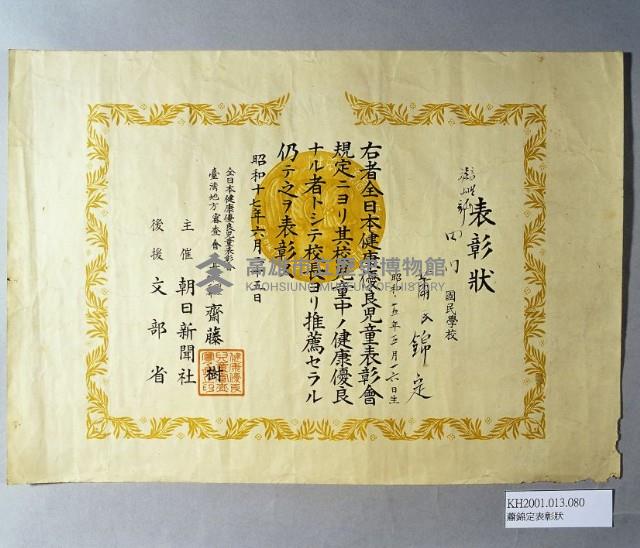 表彰狀
田川 國民學校
蕭氏錦定
昭和 五年三月一六日生
右者全日本健康優良兒童表彰會
規定ニヨリ其校兒童中ノ健康優良
ナル者トシテ校長ヨリ推薦セラル
仍テ之ヲ表彰
昭和十七年六月 五日
全日本健康優良兒童表彰會
臺灣地方審查會 齋藤 樹
主催 朝日新聞社
後援 文部省
高雄市立歷史博物館
KAOHSIUNG MUSEUM OF HISTORY
KH2001.013.080
蕭錦定表彰狀